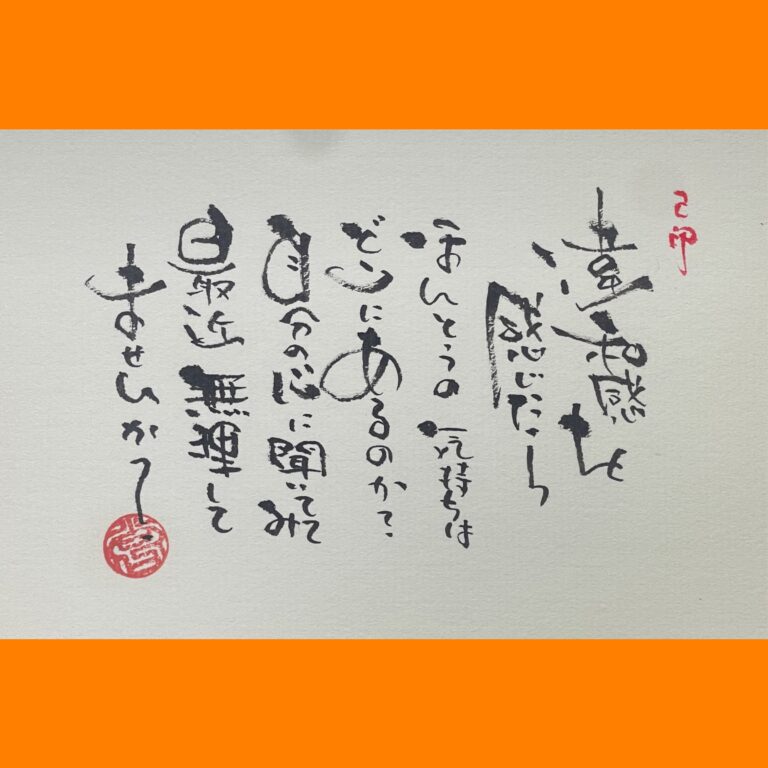 己卯
違和感を
感じたら
ほんとうの気持ちは
どこにあるのか?
自分の心に聞いてみて
最近無理して
ませんか?